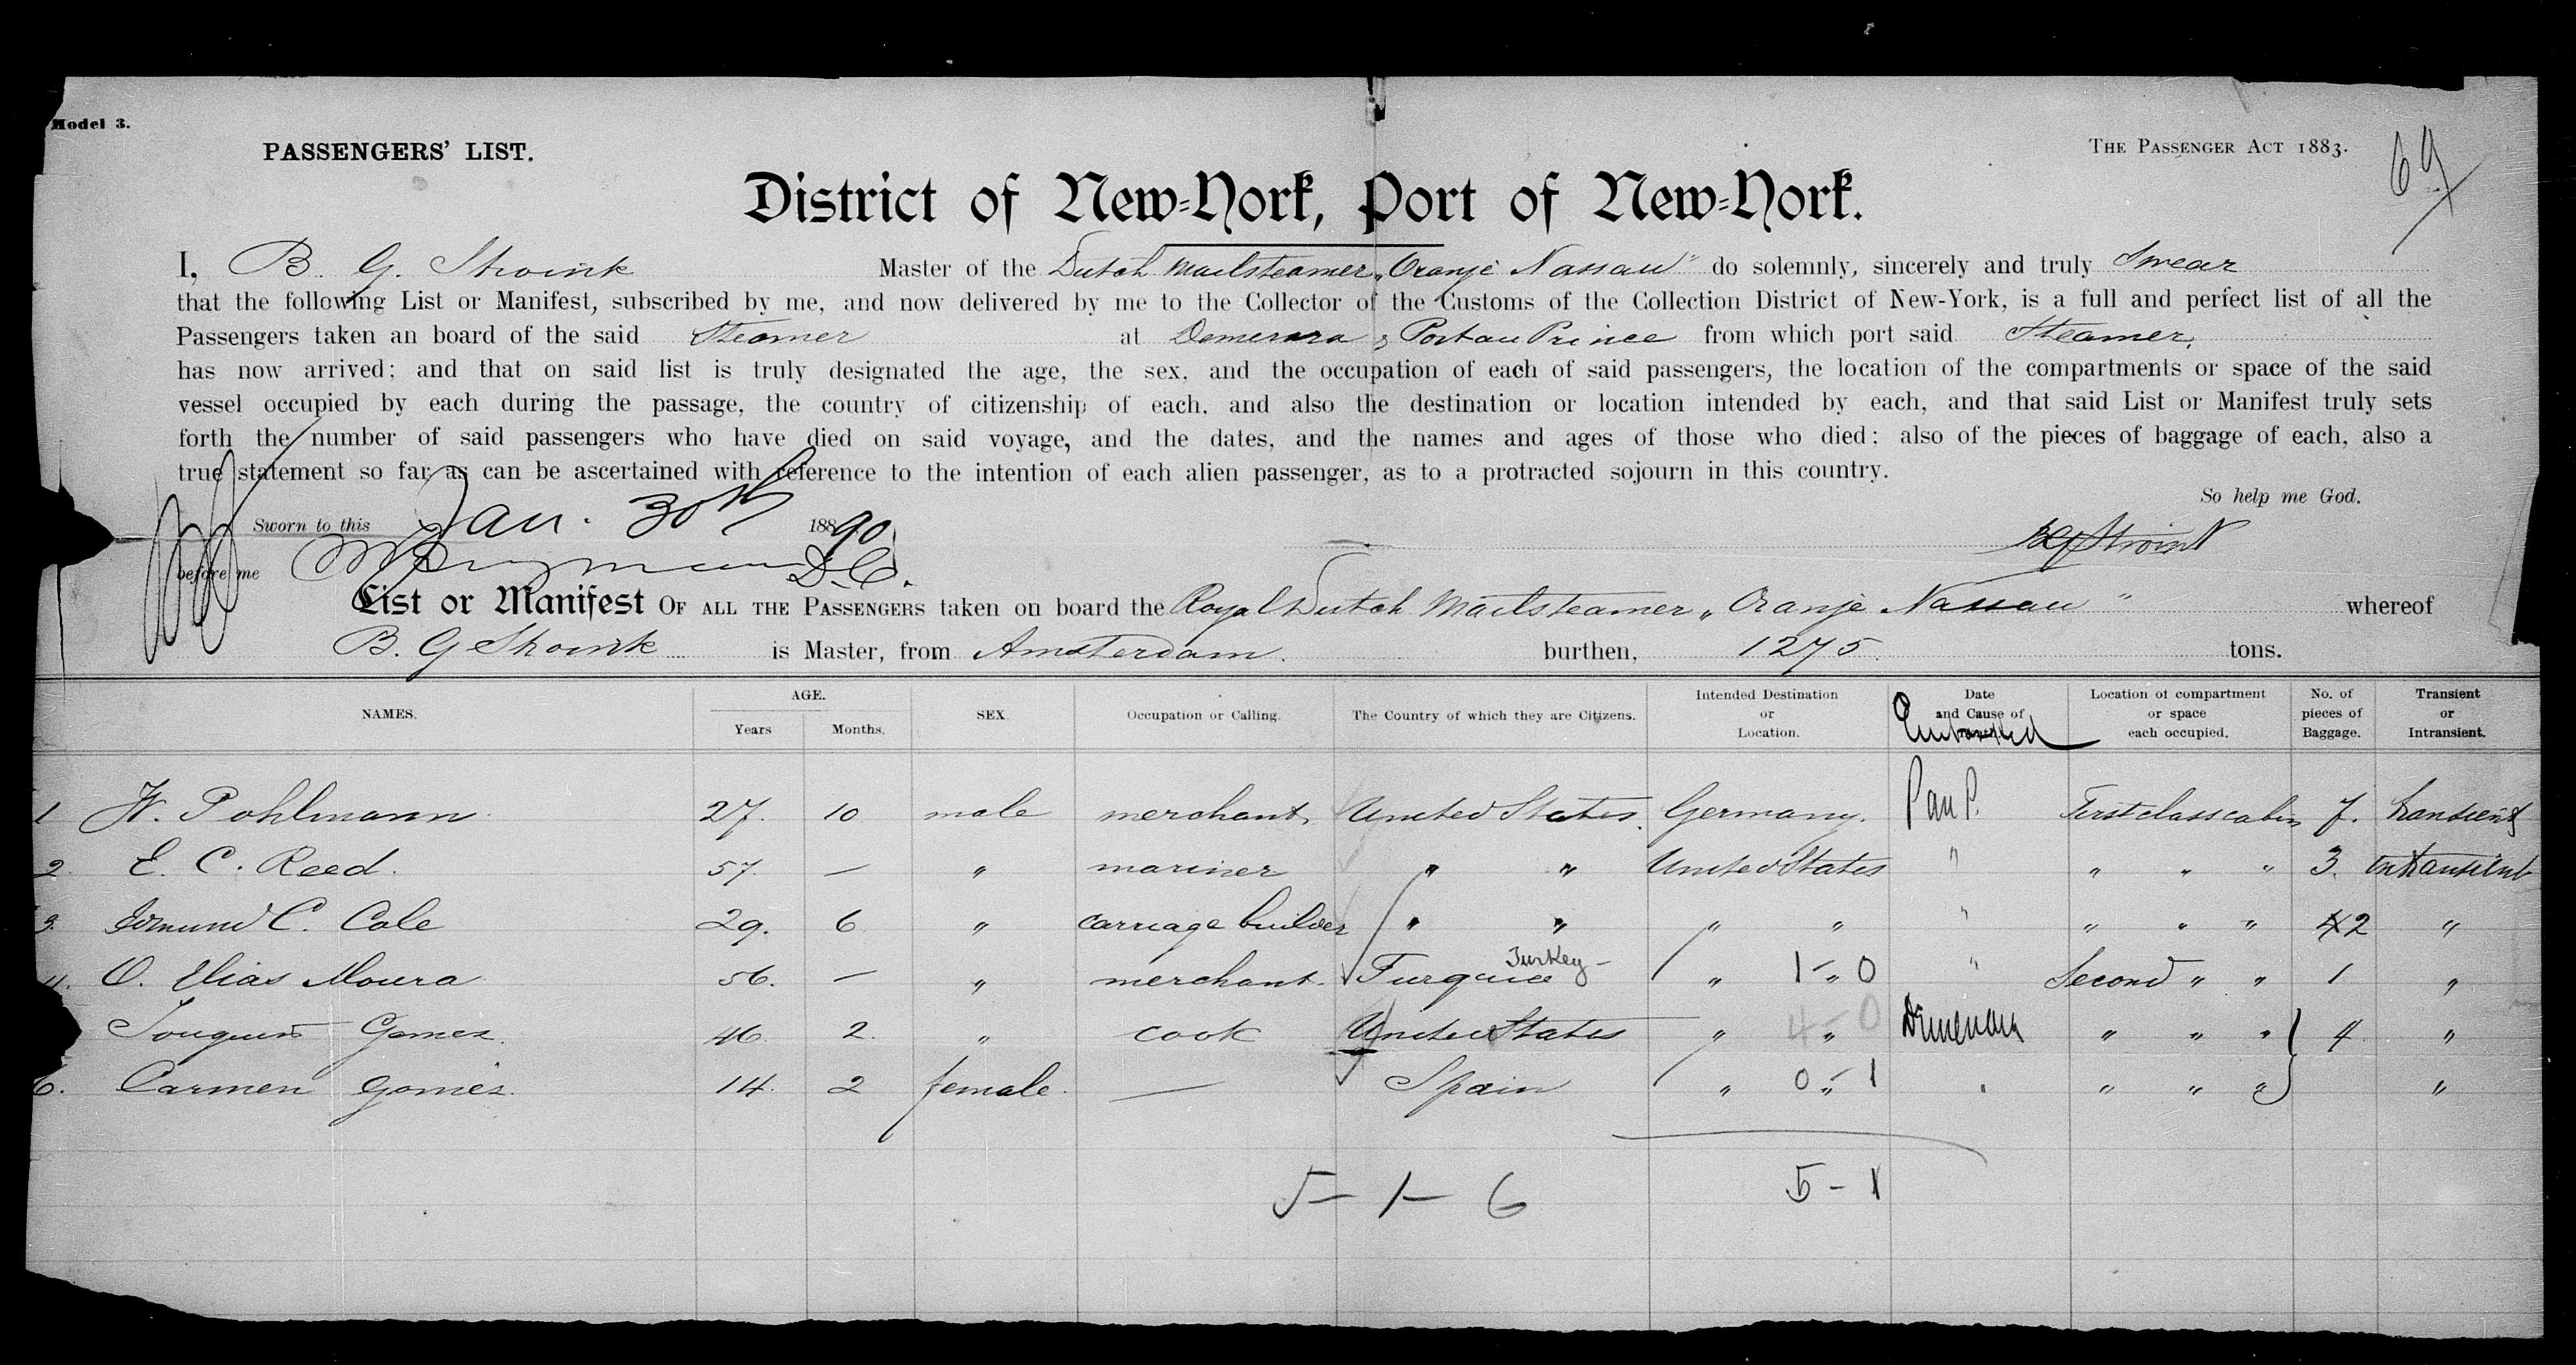 Model 3.
PASSENGERS' LIST.
THE PASSENGER ACT 1883.
69
District of New=York, Port of New=York.
I, B. G. Stroink Master of the Dutch Mailsteamer „Oranje Nassau" do solemnly, sincerely and truly Swear
that the following List or Manifest, subscribed by me, and now delivered by me to the Collector of the Customs of the Collection District of New-York, is a full and perfect list of all the
Passengers taken an board of the said Steamer at Demerara & Port au Prince from which port said Steamer.
has now arrived; and that on said list is truly designated the age, the sex, and the occupation of each of said passengers, the location of the compartments or space of the said
vessel occupied by each during the passage, the country of citizenship of each, and also the destination or location intended by each, and that said List or Manifest truly sets
forth the number of said passengers who have died on said voyage, and the dates, and the names and ages of those who died; also of the pieces of baggage of each, also a
true statement so far as can be ascertained with reference to the intention of each alien passenger, as to a protracted sojourn in this country.
So help me God.
Sworn to this Jan. 30th 1890
BG Stroink
before me D.C.
List or Manifest OF ALL THE PASSENGERS taken on board the Royal Dutch Mailsteamer „Oranje Nassau" whereof
B. G Stroink is Master, from Amsterdam. burthen, 1275 tons.
NAMES. AGE. Years Months. SEX Occupation or Calling. The Country of which they are Citizens. Intended Destination or Location. Date and Cause of Embarked Location of compartment or space each occupied. No. of pieces of Baggage. Transient or Intransient.
1 W. Pohlmann 27. 10 male merchant United States. Germany. P au P. First class cabin 7. transient
2. E. C. Reed. 57. — " mariner " " United States " " " " 3. intransient
3. Edmund C. Cole 29. 6 " carriage builder " " " " " " " " 2 "
4. O. Elias Moura 56. — " merchant. Turquie Turkey - " 1 - " 0 " Second " " 1 "
Gomez. 46. 2. " cook United States " 4 - " 0 Demerara " " " 4 "
6. Carmen Gomez. 14. 2 female. — Spain " 0 - " 1 " " " " "
5 - 1 - 6 5 - 1